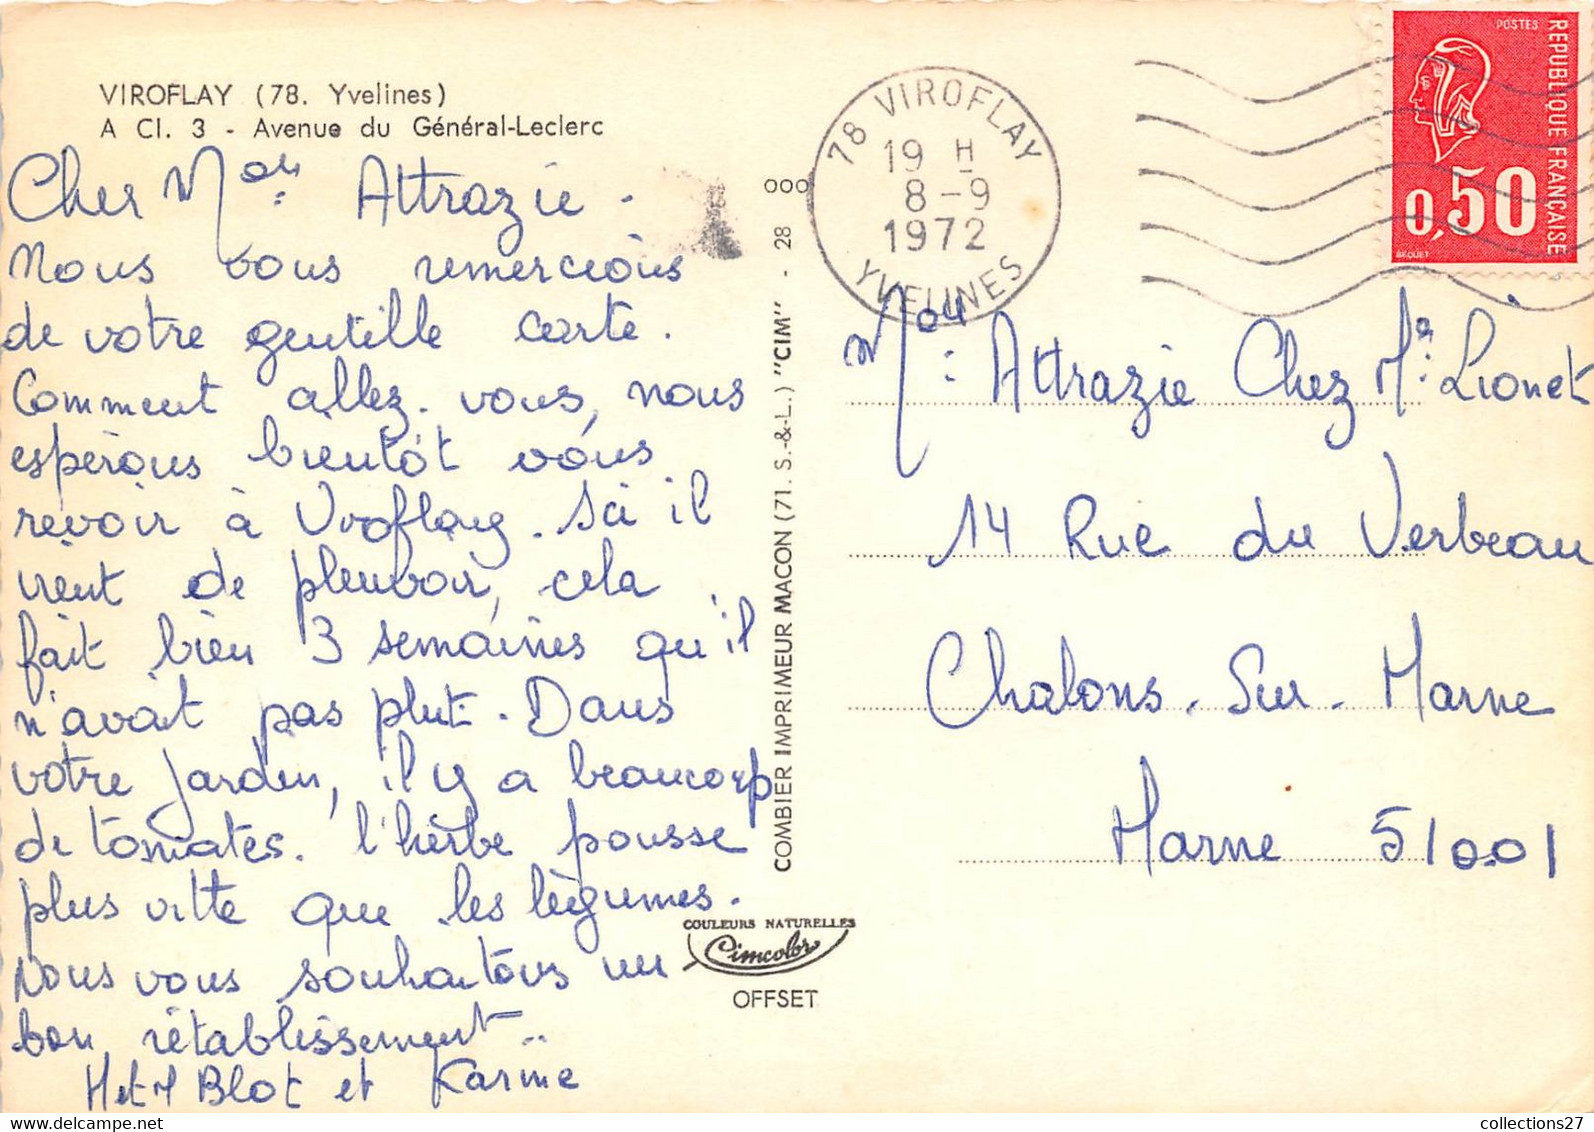 VIROFLAY (78. Yvelines)
A Cl. 3 - Avenue du Général-Leclerc
Cher Mou: Attrazie.
Nous vous remercions
de votre gentille carte.
Comment allez. vous, nous
espérons bientôt vous
revoir à Viroflay. Ici il
vient de pleuvoir, cela
fait bien 3 semaines qu'il
n'avait pas plut. Dans
votre jardin, il y a beaucoup
de tomates. l'herbe pousse
plus vitte que les légumes.
Nous vous souhaitons un
bon rétablissement..
M et M Blot et Karine
COMBIER IMPRIMEUR MACON (71. S.-&-L.) "CIM" - 28
ooo
COULEURS NATURELLES
Cimcolor
OFFSET
78 VIROFLAY
19 H
8-9
1972
YVELINES
POSTES
REPUBLIQUE FRANÇAISE
0,50
BEQUET
Mou: Attrazie Chez Ma: Lionet
14 Rue du Verbeau
Chalons. Sur. Marne
Marne 51001
collections27